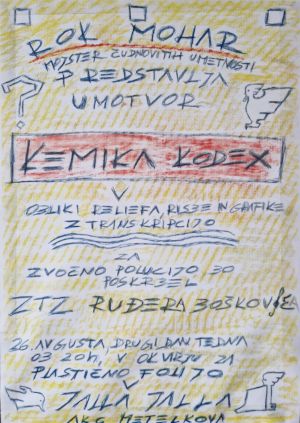 ROK MOHAR
MOJSTER ČUDNOVITIH UMETNOSTI
PREDSTAVLJA
UMOTVOR
KEMIKA KODEX
V
OBLIKI RELIEFA, RISBE IN GRAFIKE
Z TRANSKRIPCIJO
ZA
ZVOČNO POLUCIJO BO
POSKRBEL
ZTZ RUĐERA BOŠKOVIĆA
26. AVGUSTA DRUGI DAN TEDNA
OB 20h, V OKVIRJU ZA
PLASTIČNO FOLIJO
V
JALLA JALLA
AKC METELKOVA